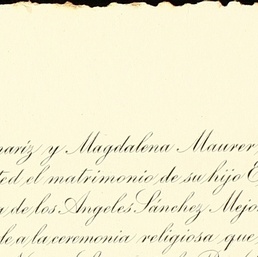 nariz y Magdalena Maurer,
ted el matrimonio de su hijo E
a de los Angeles Sánchez Mejo
le a la ceremonia religiosa que